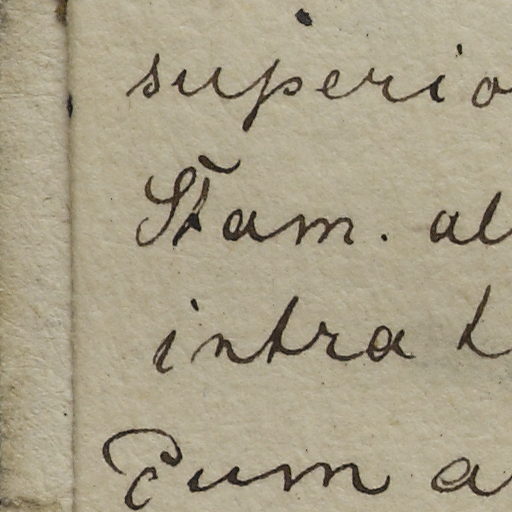 superio
Stam. al
intra t
Cum a